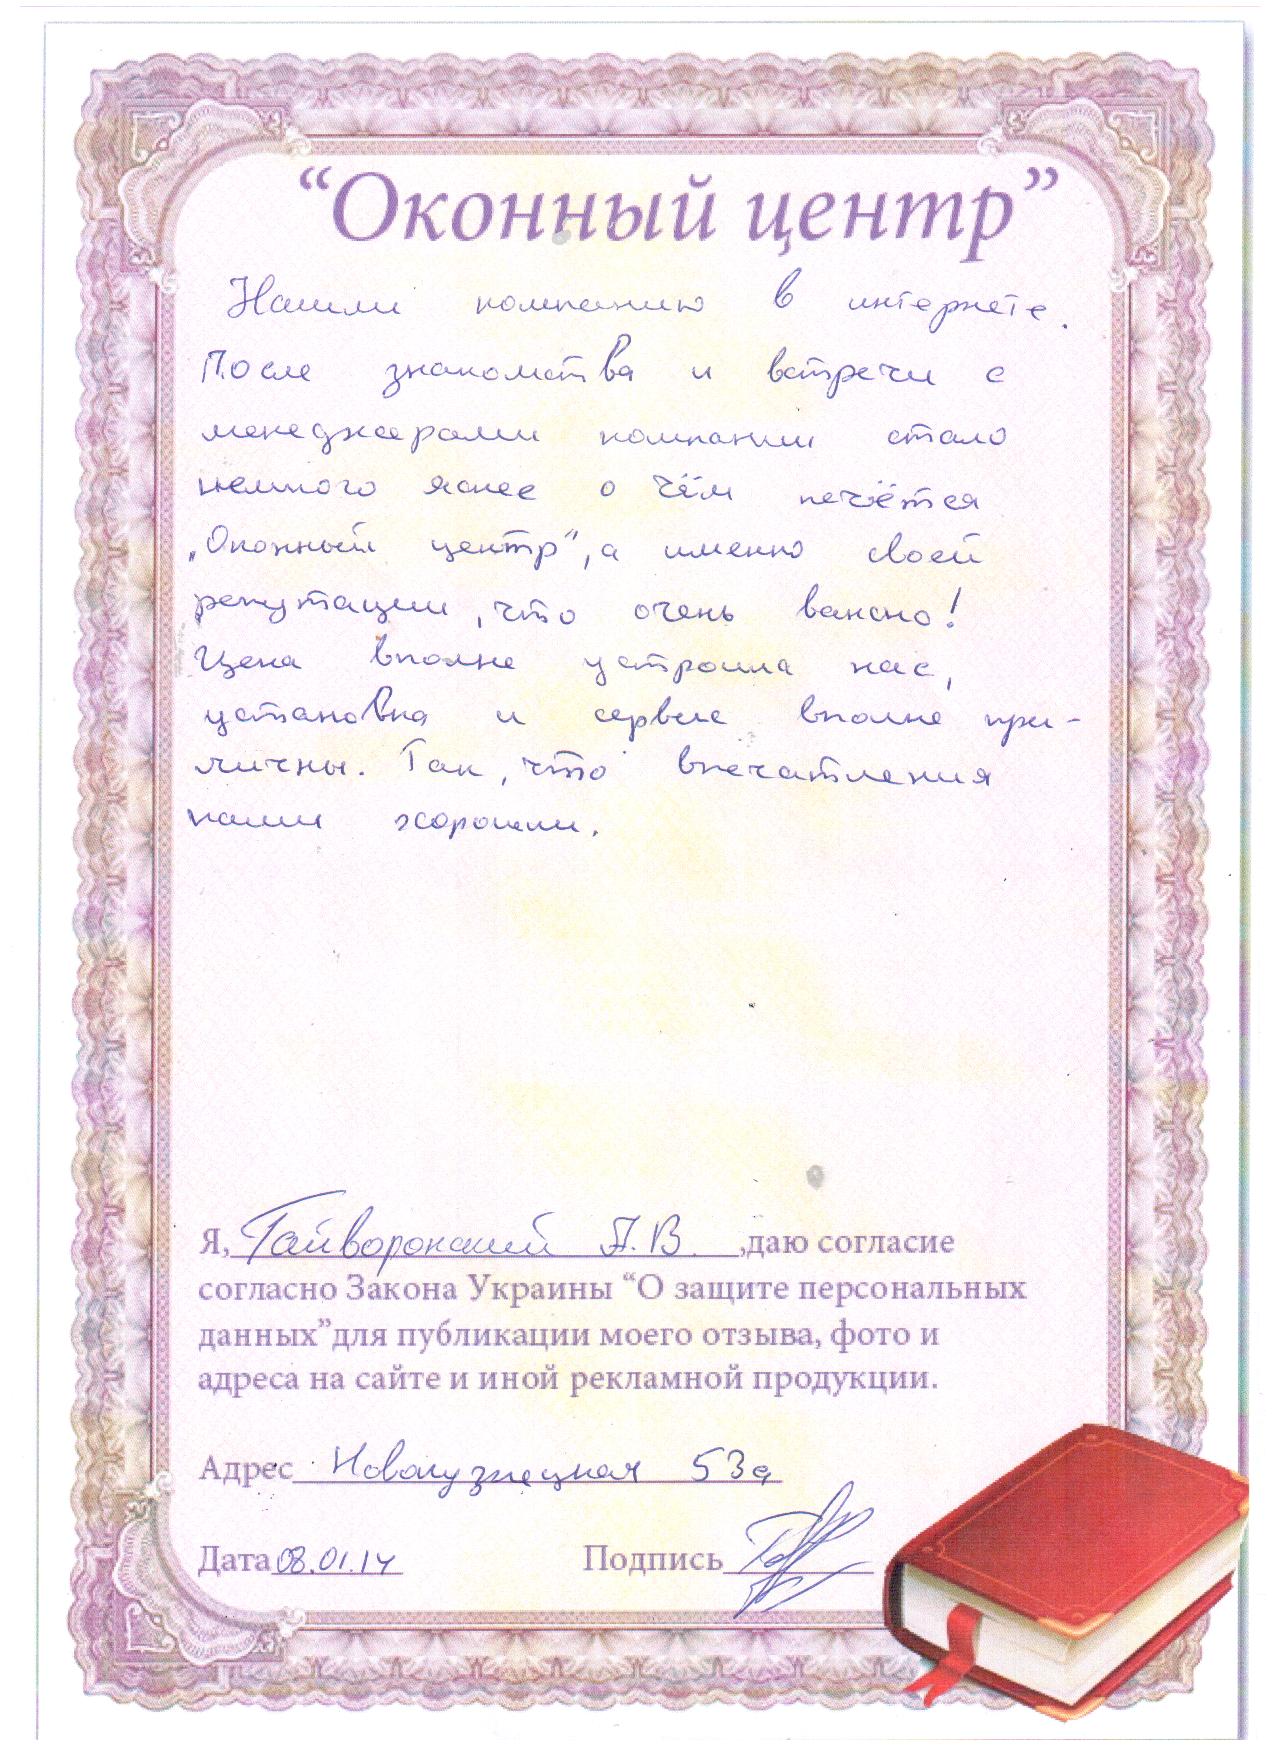 “Оконный центр”
Нашли компанию в интернете.
После знакомства и встречи с
менеджерами компании стало
немного яснее о чём печётся
„Оконный центр“, а именно своей
репутации, что очень важно!
Цена вполне устроила нас,
установка и сервис вполне при-
личны. Так, что впечатления
наши хорошии.
Я, Гайворонский А.В. ,даю согласие
согласно Закона Украины “О защите персональных
данных”для публикации моего отзыва, фото и
адреса на сайте и иной рекламной продукции.
Адрес Новокузнецкая 53а
Дата 08.01.14 Подпись